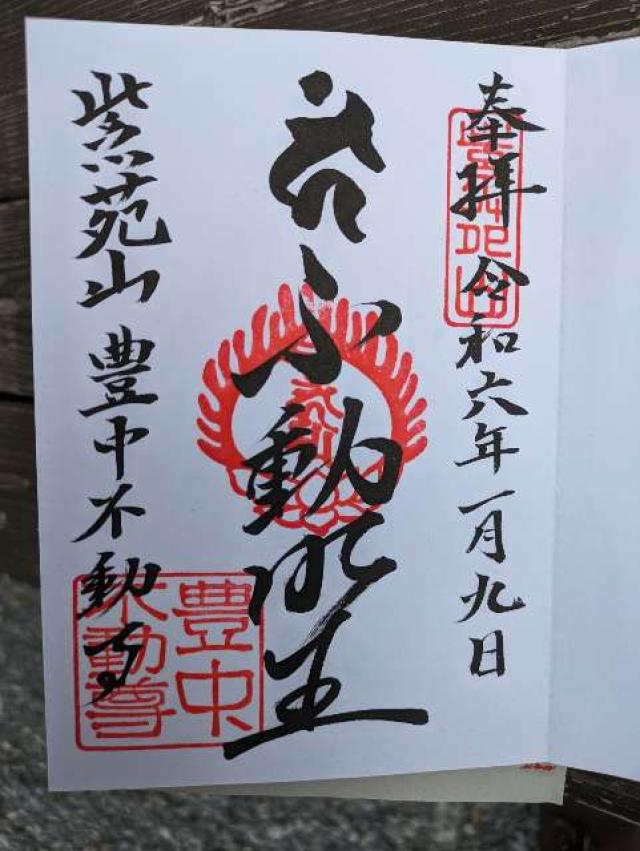 奉拝
令和六年一月九日
不動明王
紫苑山 豊中不動寺
豊中
不動尊